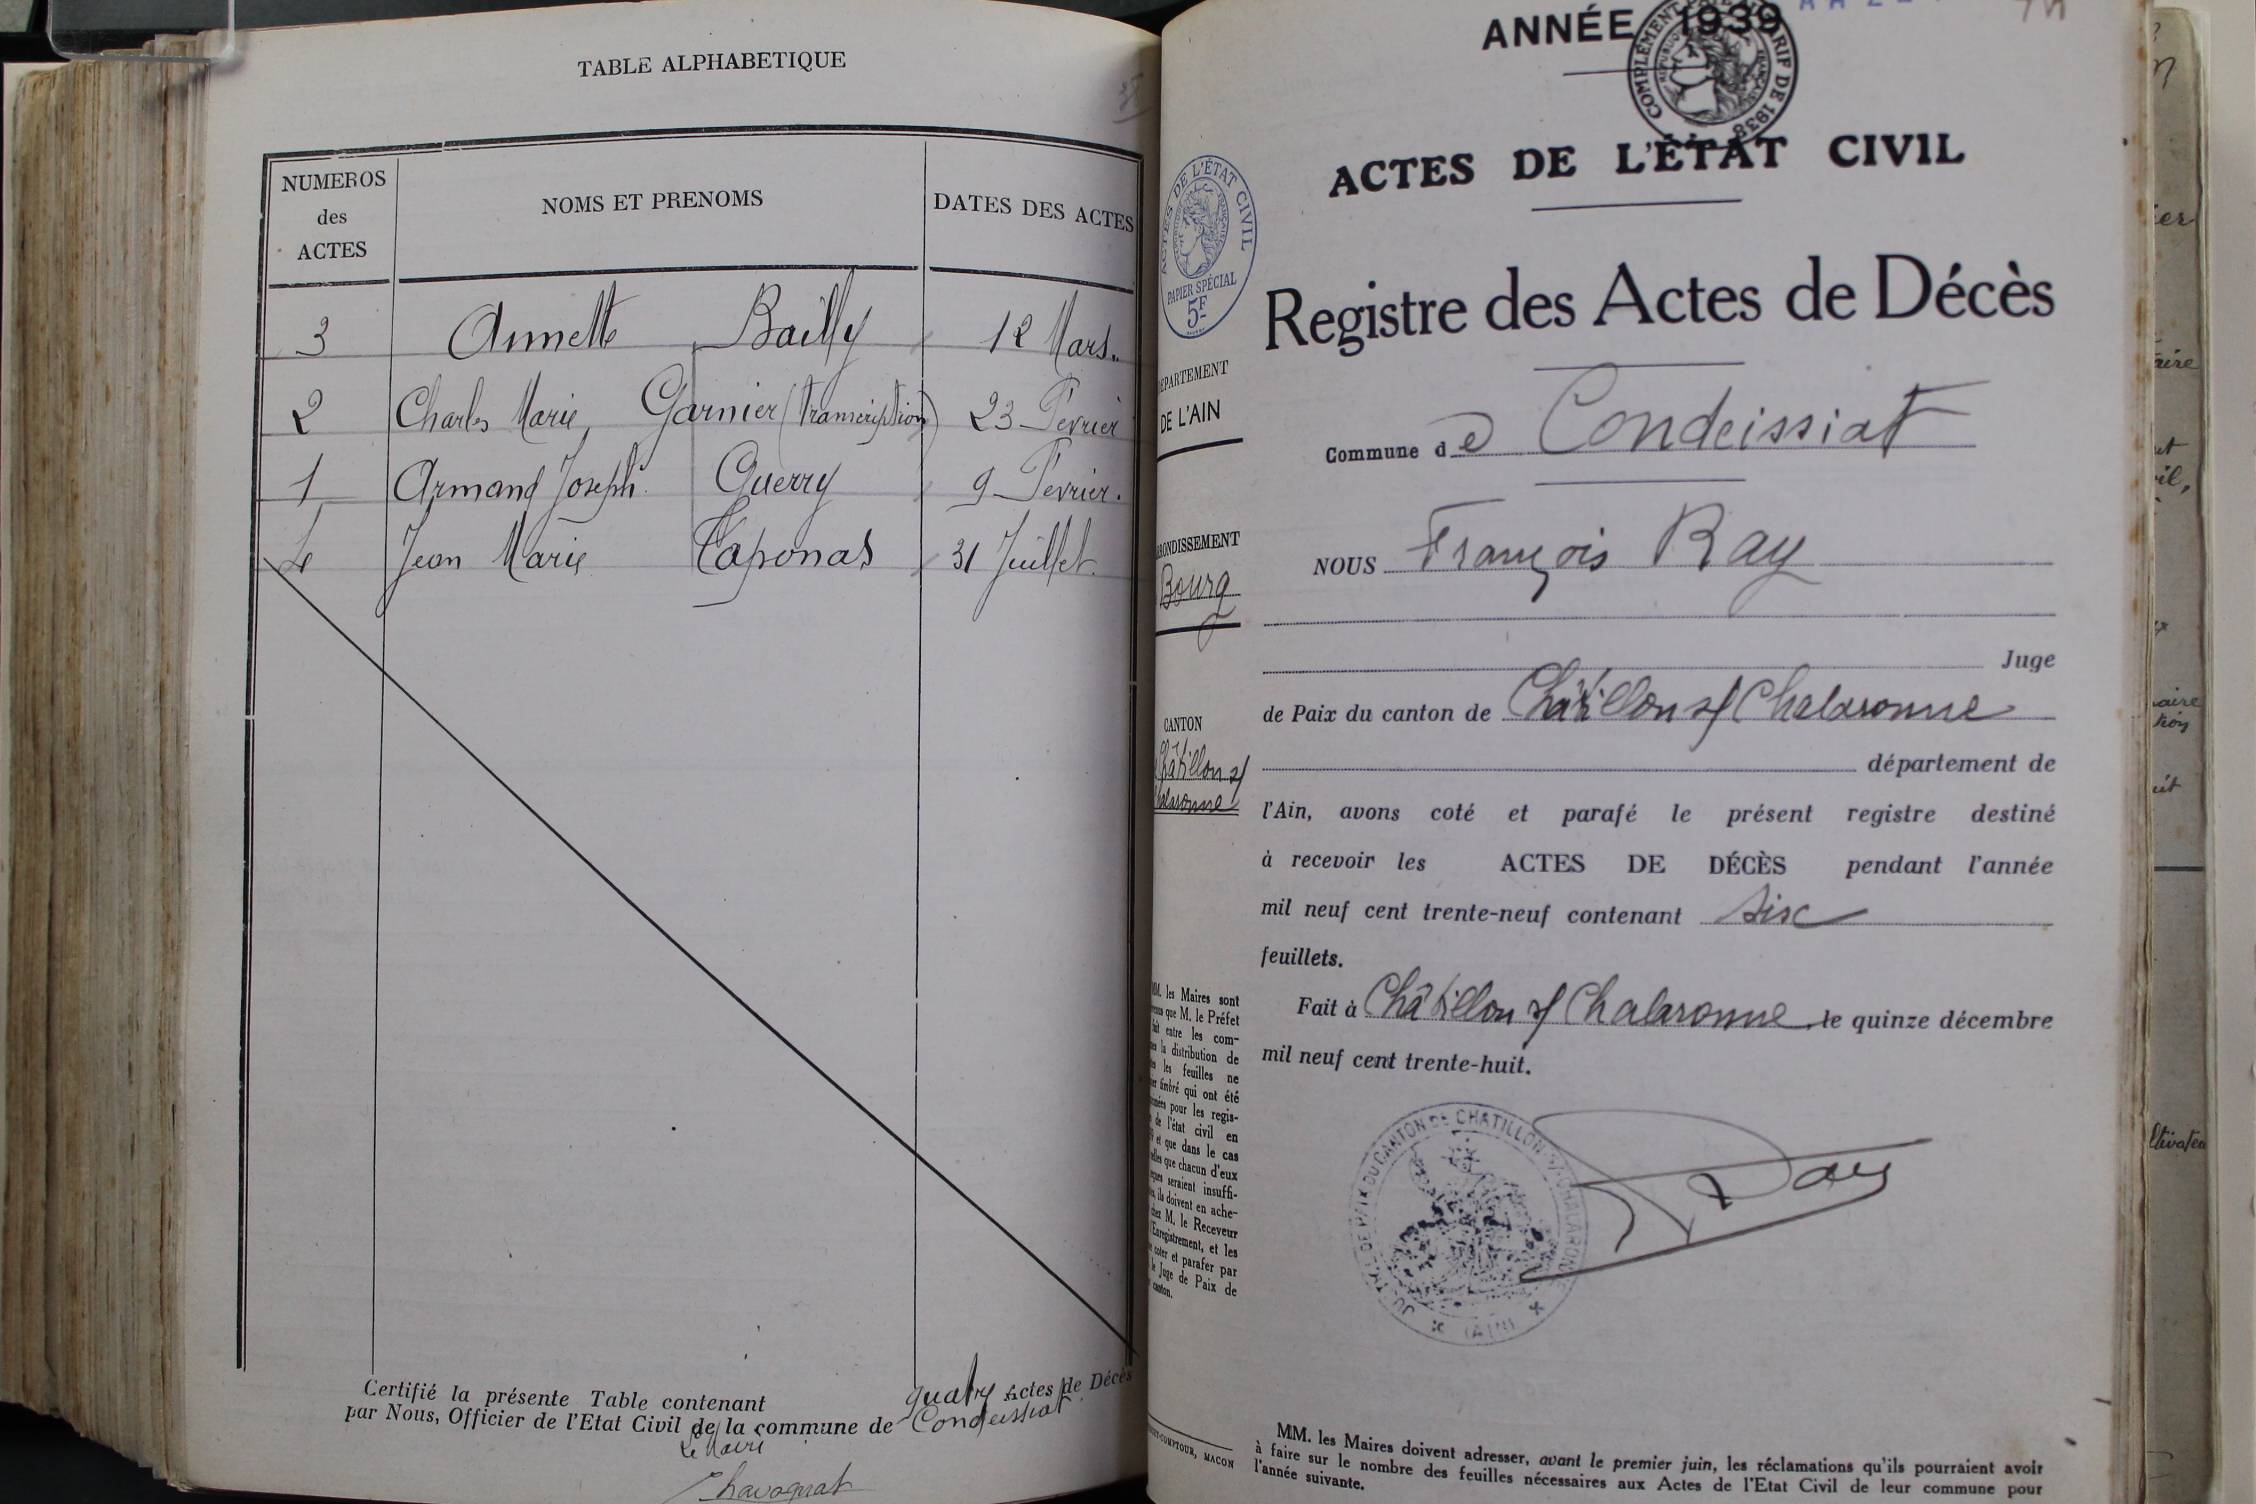 TABLE ALPHABETIQUE
NUMEROS des ACTES
NOMS ET PRENOMS
DATES DES ACTES
3 Annette Bailly 12 Mars.
2 Charles Marie, Garnier (transcription) 23 Fevrier
1 Armand Joseph Guerry 9 Fevrier.
4 Jean Marie Taponas 31 Juillet
Certifié la présente Table contenant quatre Actes de Décès
par Nous, Officier de l'Etat Civil de la commune de Condeissiat.
Le Maire
Chavagnat
ANNÉE 1939
COMPLÉMENT TARIF DE 1938
ACTES DE L'ÉTAT CIVIL
ACTES DE L'ÉTAT CIVIL
RÉPUBLIQUE FRANÇAISE
PAPIER SPÉCIAL
5F
Registre des Actes de Décès
DÉPARTEMENT
DE L'AIN
Commune de Condeissiat
ARRONDISSEMENT
Bourg
NOUS François Ray
Juge
de Paix du canton de Châtillon s/ Chalaronne
CANTON
Châtillon s/
Chalaronne
département de
l'Ain, avons coté et parafé le présent registre destiné
à recevoir les ACTES DE DÉCÈS pendant l'année
mil neuf cent trente-neuf contenant sisc
feuillets.
Fait à Châtillon s/ Chalaronne, le quinze décembre
mil neuf cent trente-huit.
MM. les Maires sont
que M. le Préfet
fait entre les com-
la distribution de
les feuilles ne
timbré qui ont été
pour les regis-
de l'état civil en
et que dans le cas
que chacun d'eux
seraient insuffi-
ils doivent en ache-
chez M. le Receveur
l'Enregistrement, et les
coter et parafer par
le Juge de Paix de
canton.
DE PAIX DU CANTON DE CHATILLON S/ CHALARONNE
(AIN)
Ray
COMPTOUR, MACON
MM. les Maires doivent adresser, avant le premier juin, les réclamations qu'ils pourraient avoir
à faire sur le nombre des feuilles nécessaires aux Actes de l'Etat Civil de leur commune pour
l'année suivante.